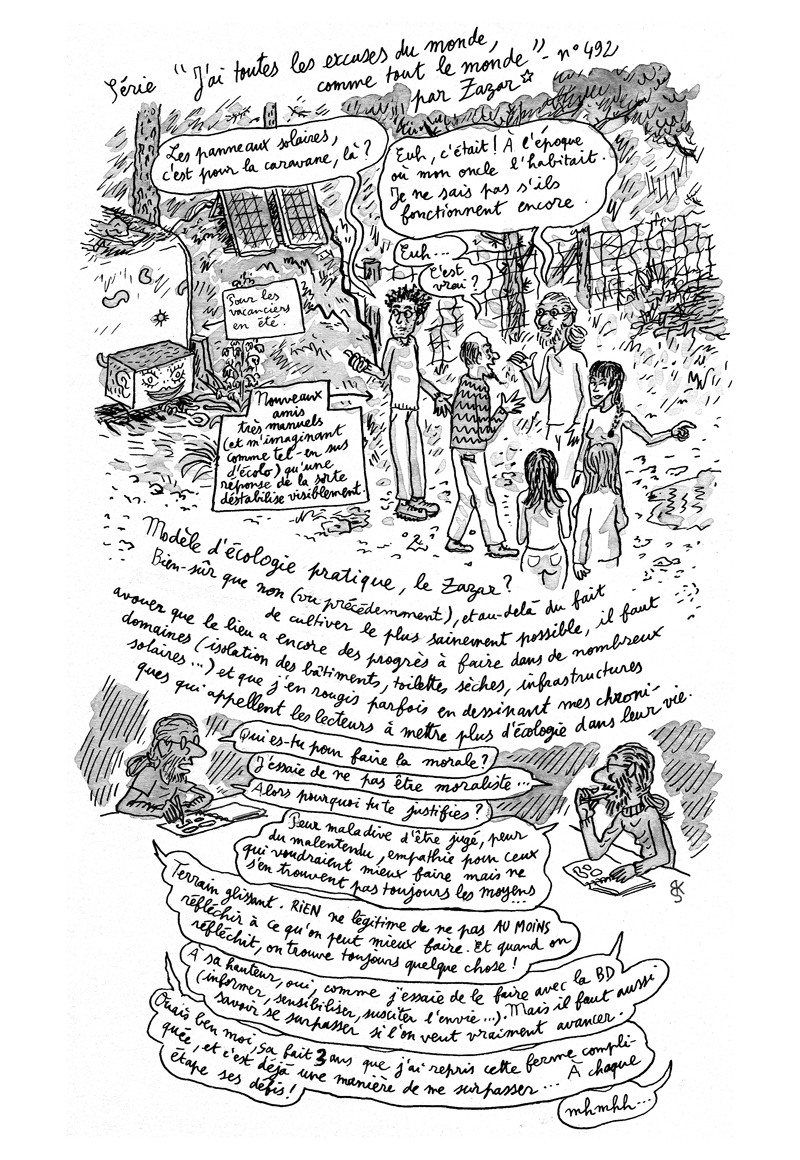 Série "J'ai toutes les excuses du monde,
comme tout le monde" - n°492
par Zazar☆
Les panneaux solaires,
c'est pour la caravane, là ?
Euh, c'était ! À l'époque
où mon oncle l'habitait.
Je ne sais pas s'ils
fonctionnent encore.
Euh...
C'est
vrai ?
Pour les
vacanciers
en été.
Nouveaux
amis
très manuels
(et m'imaginant
comme tel - en sus
d'écolo) qu'une
réponse de la sorte
déstabilise visiblement.
Modèle d'écologie pratique, le Zazar ?
Bien-sûr que non (vu précédemment), et au-delà du fait
de cultiver le plus sainement possible, il faut
avouer que le lieu a encore des progrès à faire dans de nombreux
domaines (isolation des bâtiments, toilettes sèches, infrastructures
solaires...) et que j'en rougis parfois en dessinant mes chroni-
ques qui appellent les lecteurs à mettre plus d'écologie dans leur vie.
Qui es-tu pour faire la morale ?
J'essaie de ne pas être moraliste...
Alors pourquoi tu te justifies ?
Peur maladive d'être jugé, peur
du malentendu, empathie pour ceux
qui voudraient mieux faire mais ne
s'en trouvent pas toujours les moyens
...
Terrain glissant. RIEN ne légitime de ne pas AU MOINS
réfléchir à ce qu'on peut mieux faire. Et quand on
réfléchit, on trouve toujours quelque chose !
À sa hauteur, oui, comme j'essaie de le faire avec la BD
(informer, sensibiliser, susciter l'envie...). Mais il faut aussi
savoir se surpasser si l'on veut vraiment avancer.
Ouais ben moi, ça fait 3 ans que j'ai repris cette ferme compli-
quée, et c'est déjà une manière de me surpasser... À chaque
étape ses défis !
mhmhh...